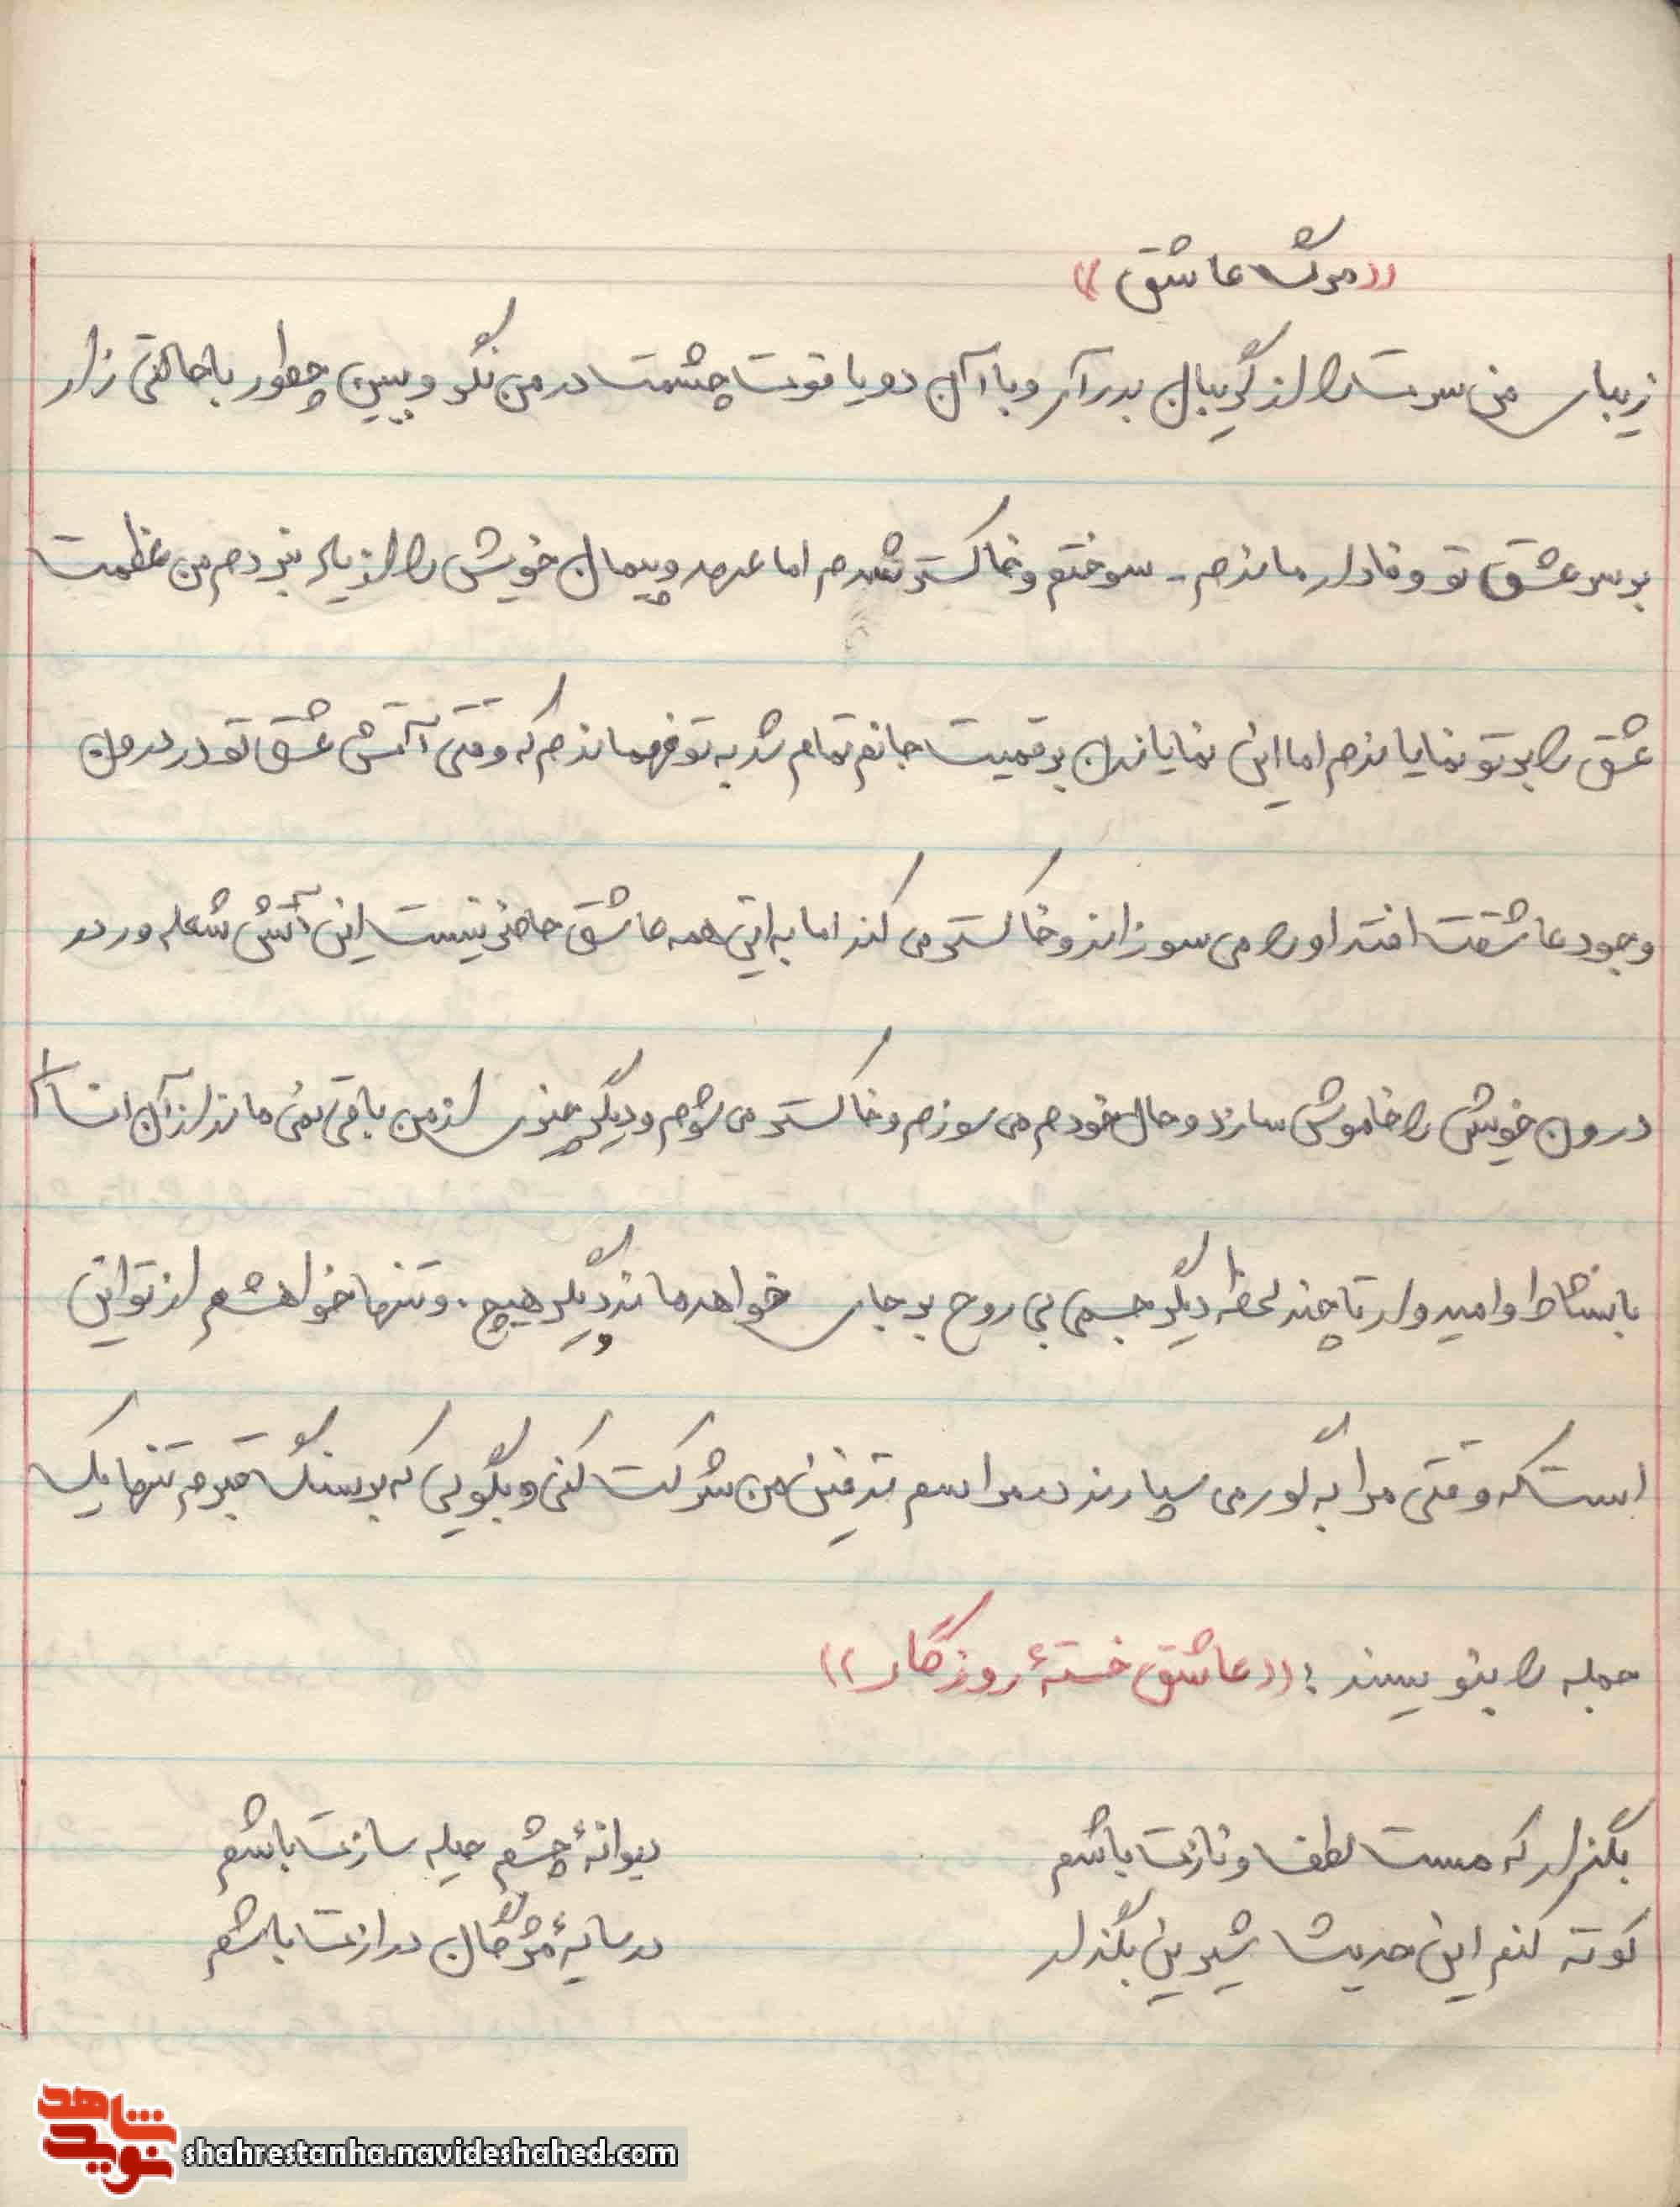 ((مرگ عاشق))
زیبای من سرت را از گریبان بدر آر و با آن دو یاقوت چشمت در من نگر و ببین چطور با حالتی زار
بر سر عشق تو وفادار ماندم - سوختم و خاکستر شدم اما عهد و پیمان خویش را از یاد نبردم من عظمت
عشق را بر تو نمایاندم اما این نمایاندن بر قمیت جانم تمام شد به تو فهماندم که وقتی آتش عشق تو در درون
وجود عاشقت افتد او را می سوزاند و خاکستر می کند اما به این همه عاشق حاضر نیست این آتش شعله ور در
درون خویش را خاموش سازد و حال خودم می سوزم و خاکستر می شوم و دیگر چیزی از من باقی نمی ماند از آن انسان
با نشاط و امیدوار تا چند لحظه دیگر جسمی بی روح بر جای خواهد ماند و دیگر هیچ. و تنها خواهشم از تو این
است که وقتی مرا به گور می سپارند در مراسم تدفین من شرکت کنی و بگویی که بر سنگ قبرم تنها یک
جمله را بنویسند : ((عاشق خستۀ روزگار))
بگذار که مست لطف و نازت باشم دیوانۀ چشم حیله سازت باشم
کوته کنم این حدیث شیرین بگذار در سایۀ مژگان درازت باشم
شاهد
نوید
shahrestanha.navideshahed.com